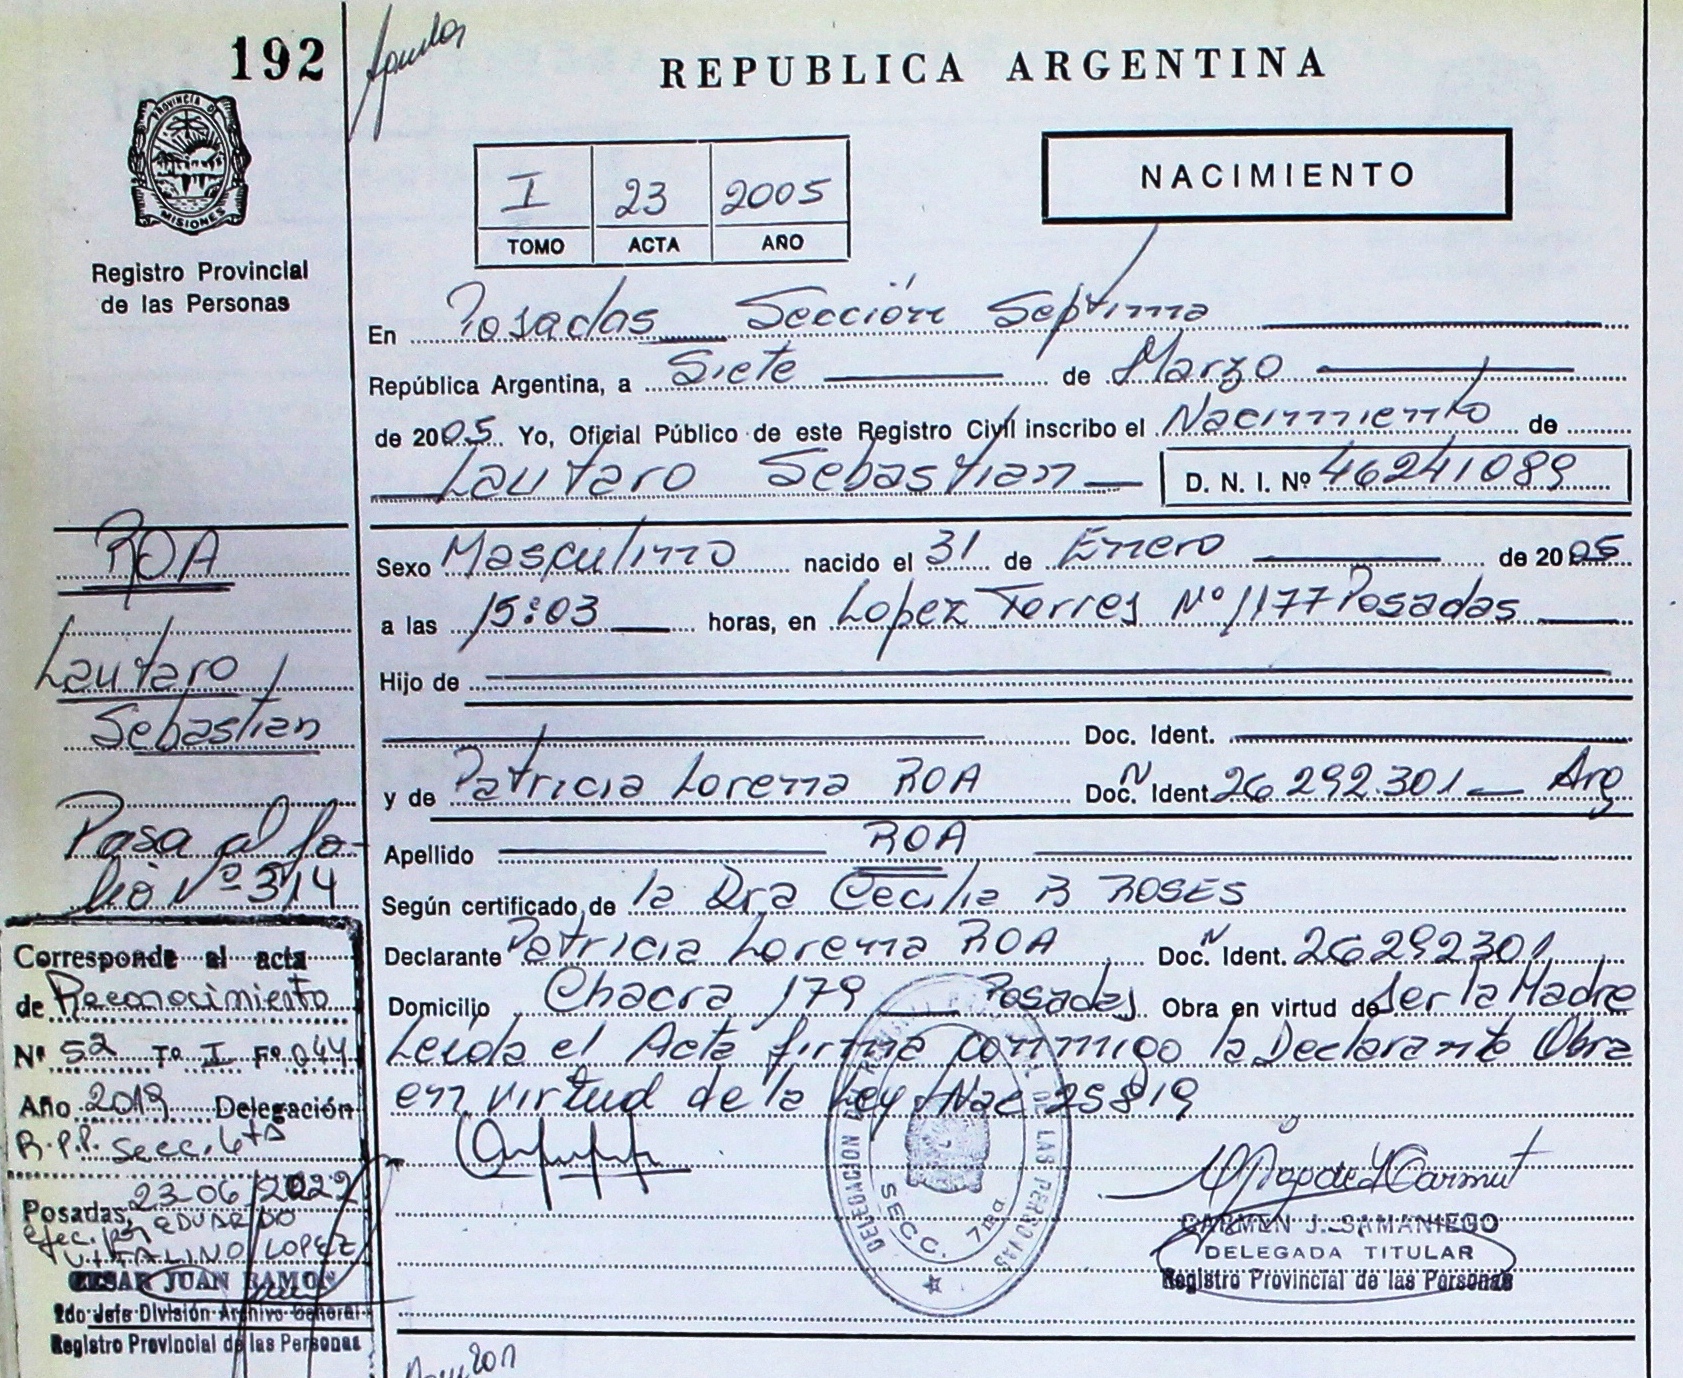 192
REPUBLICA ARGENTINA
PROVINCIA DE
MISIONES
Registro Provincial
de las Personas
I 23 2005
TOMO ACTA AÑO
NACIMIENTO
En Posadas Sección Septima
República Argentina, a Siete de Marzo
de 2005 Yo, Oficial Público de este Registro Civil inscribo el Nacimiento de
Lautaro Sebastian D. N. I. Nº 46241089
Sexo Masculino nacido el 31 de Enero de 2005
a las 15:03 horas, en Lopez Torres Nº 1177 Posadas
Hijo de
Doc. Ident.
y de Patricia Lorena ROA Doc. N Ident. 26.292.301 Arg
Apellido ROA
Según certificado de la Dra Cecilia B ROSES
Declarante Patricia Lorena ROA Doc. N Ident. 26292301
Domicilio Chacra 179 Posadas Obra en virtud de Ser la Madre
Leida el Acta firma conmigo la Declarante Obra
en virtud de la Ley Nac 25819
SECC. 7ma
CARMEN J. SAMANIEGO
DELEGADA TITULAR
Registro Provincial de las Personas
ROA
Lautaro
Sebastian
Pasa al fo-
lio Nº 314
Corresponde al acta
de Reconocimiento
Nº 52 Tº I Fº 044
Año 2019 Delegación
R.P.P. secc. 6ta
Posadas, 23-06/2022
efec. por EDUARDO
VITALINO LOPEZ
CESAR JUAN RAMON
2do Jefe División Archivo General
Registro Provincial de las Personas